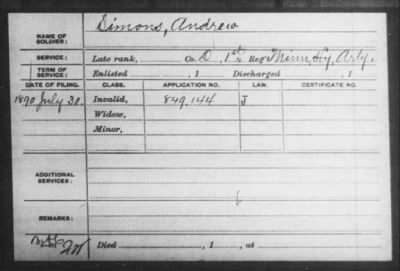 Simons, Andrew
NAME OF SOLDIER:
SERVICE: Late rank, Co. D, 1st Reg't Minn. Hy. Arty.
TERM OF SERVICE: Enlisted , 1 Discharged , 1
DATE OF FILING. CLASS. APPLICATION NO. LAW. CERTIFICATE NO.
1890 July 30. Invalid, 849.144 J
Widow,
Minor,
ADDITIONAL SERVICES:
REMARKS:
Died , 1 , at